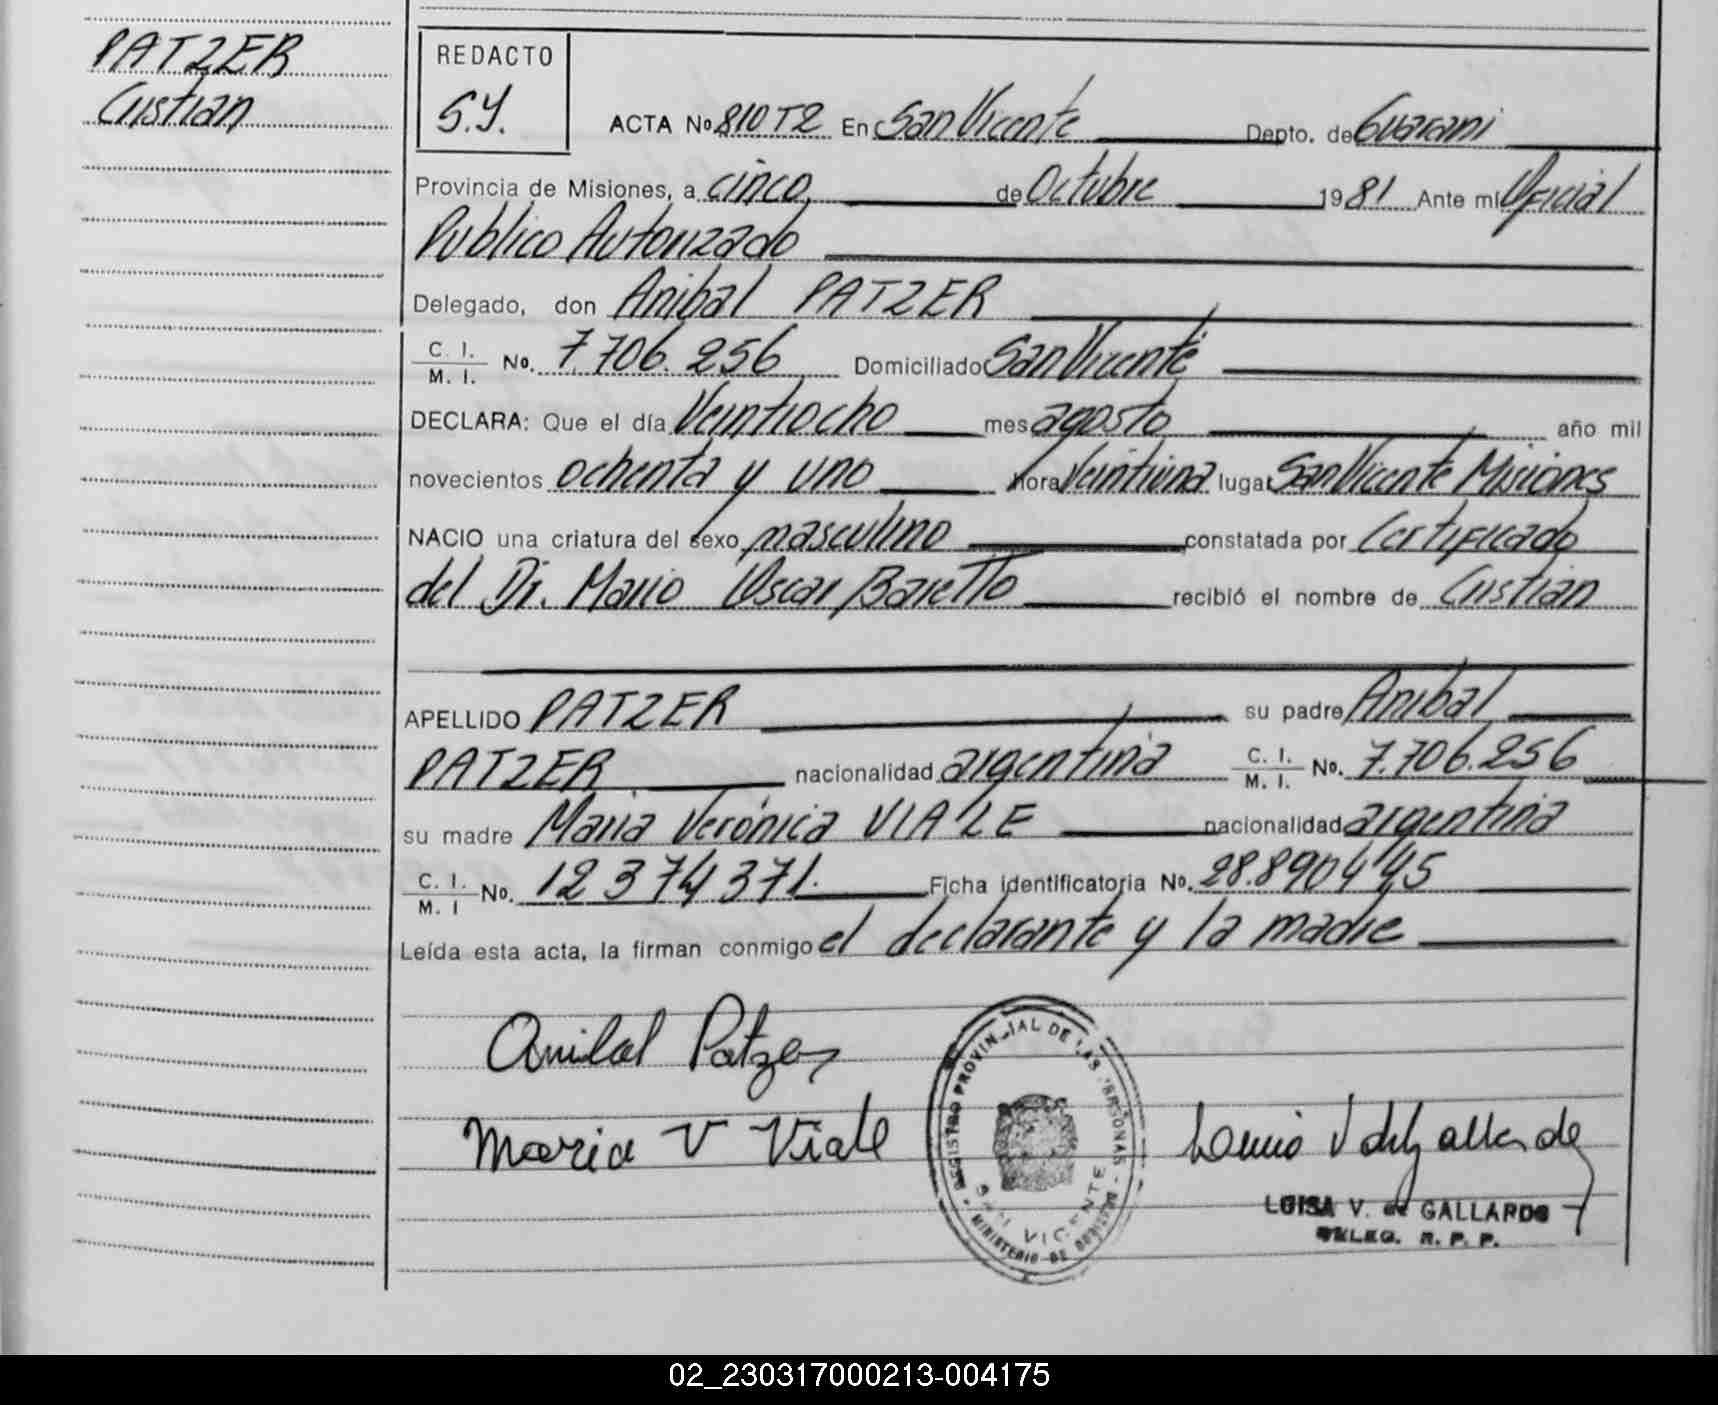 PATZER
Cristian
REDACTO
S.Y.
ACTA No 810 T2 En San Vicente Depto. de Guaraní
Provincia de Misiones, a cinco, de Octubre 1981 Ante mí Oficial
Publico Autorizado
Delegado, don Anibal PATZER
C. I. / M. I. No. 7.706.256 Domiciliado San Vicente
DECLARA: Que el día Veintiocho mes agosto año mil
novecientos ochenta y uno hora Veintiuna lugar San Vicente Misiones
NACIO una criatura del sexo masculino constatada por Certificado
del Dr. Mario Oscar Baretto recibió el nombre de Cristian
APELLIDO PATZER su padre Anibal
PATZER nacionalidad argentina C. I. / M. I. No. 7.706.256
su madre Maria Verónica VIALE nacionalidad argentina
C. I. / M. I No. 12 374 371. Ficha identificatoria No. 28.890445
Leída esta acta, la firman conmigo el declarante y la madre
Anibal Patzer
Maria V Viale
REGISTRO PROVINCIAL DE LAS PERSONAS
SAN VICENTE
MINISTERIO DE GOBIERNO
LUISA V. de GALLARDO
DELEG. R. P. P.
02_230317000213-004175